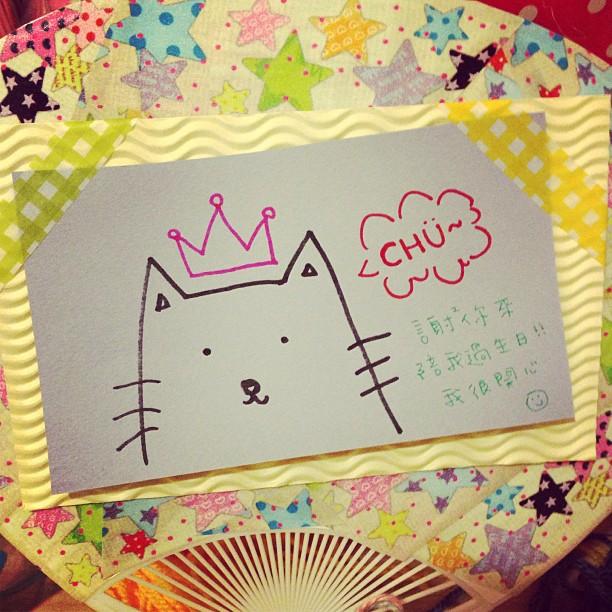 CHÜ~
謝謝你來
陪我過生日!!
我很開心